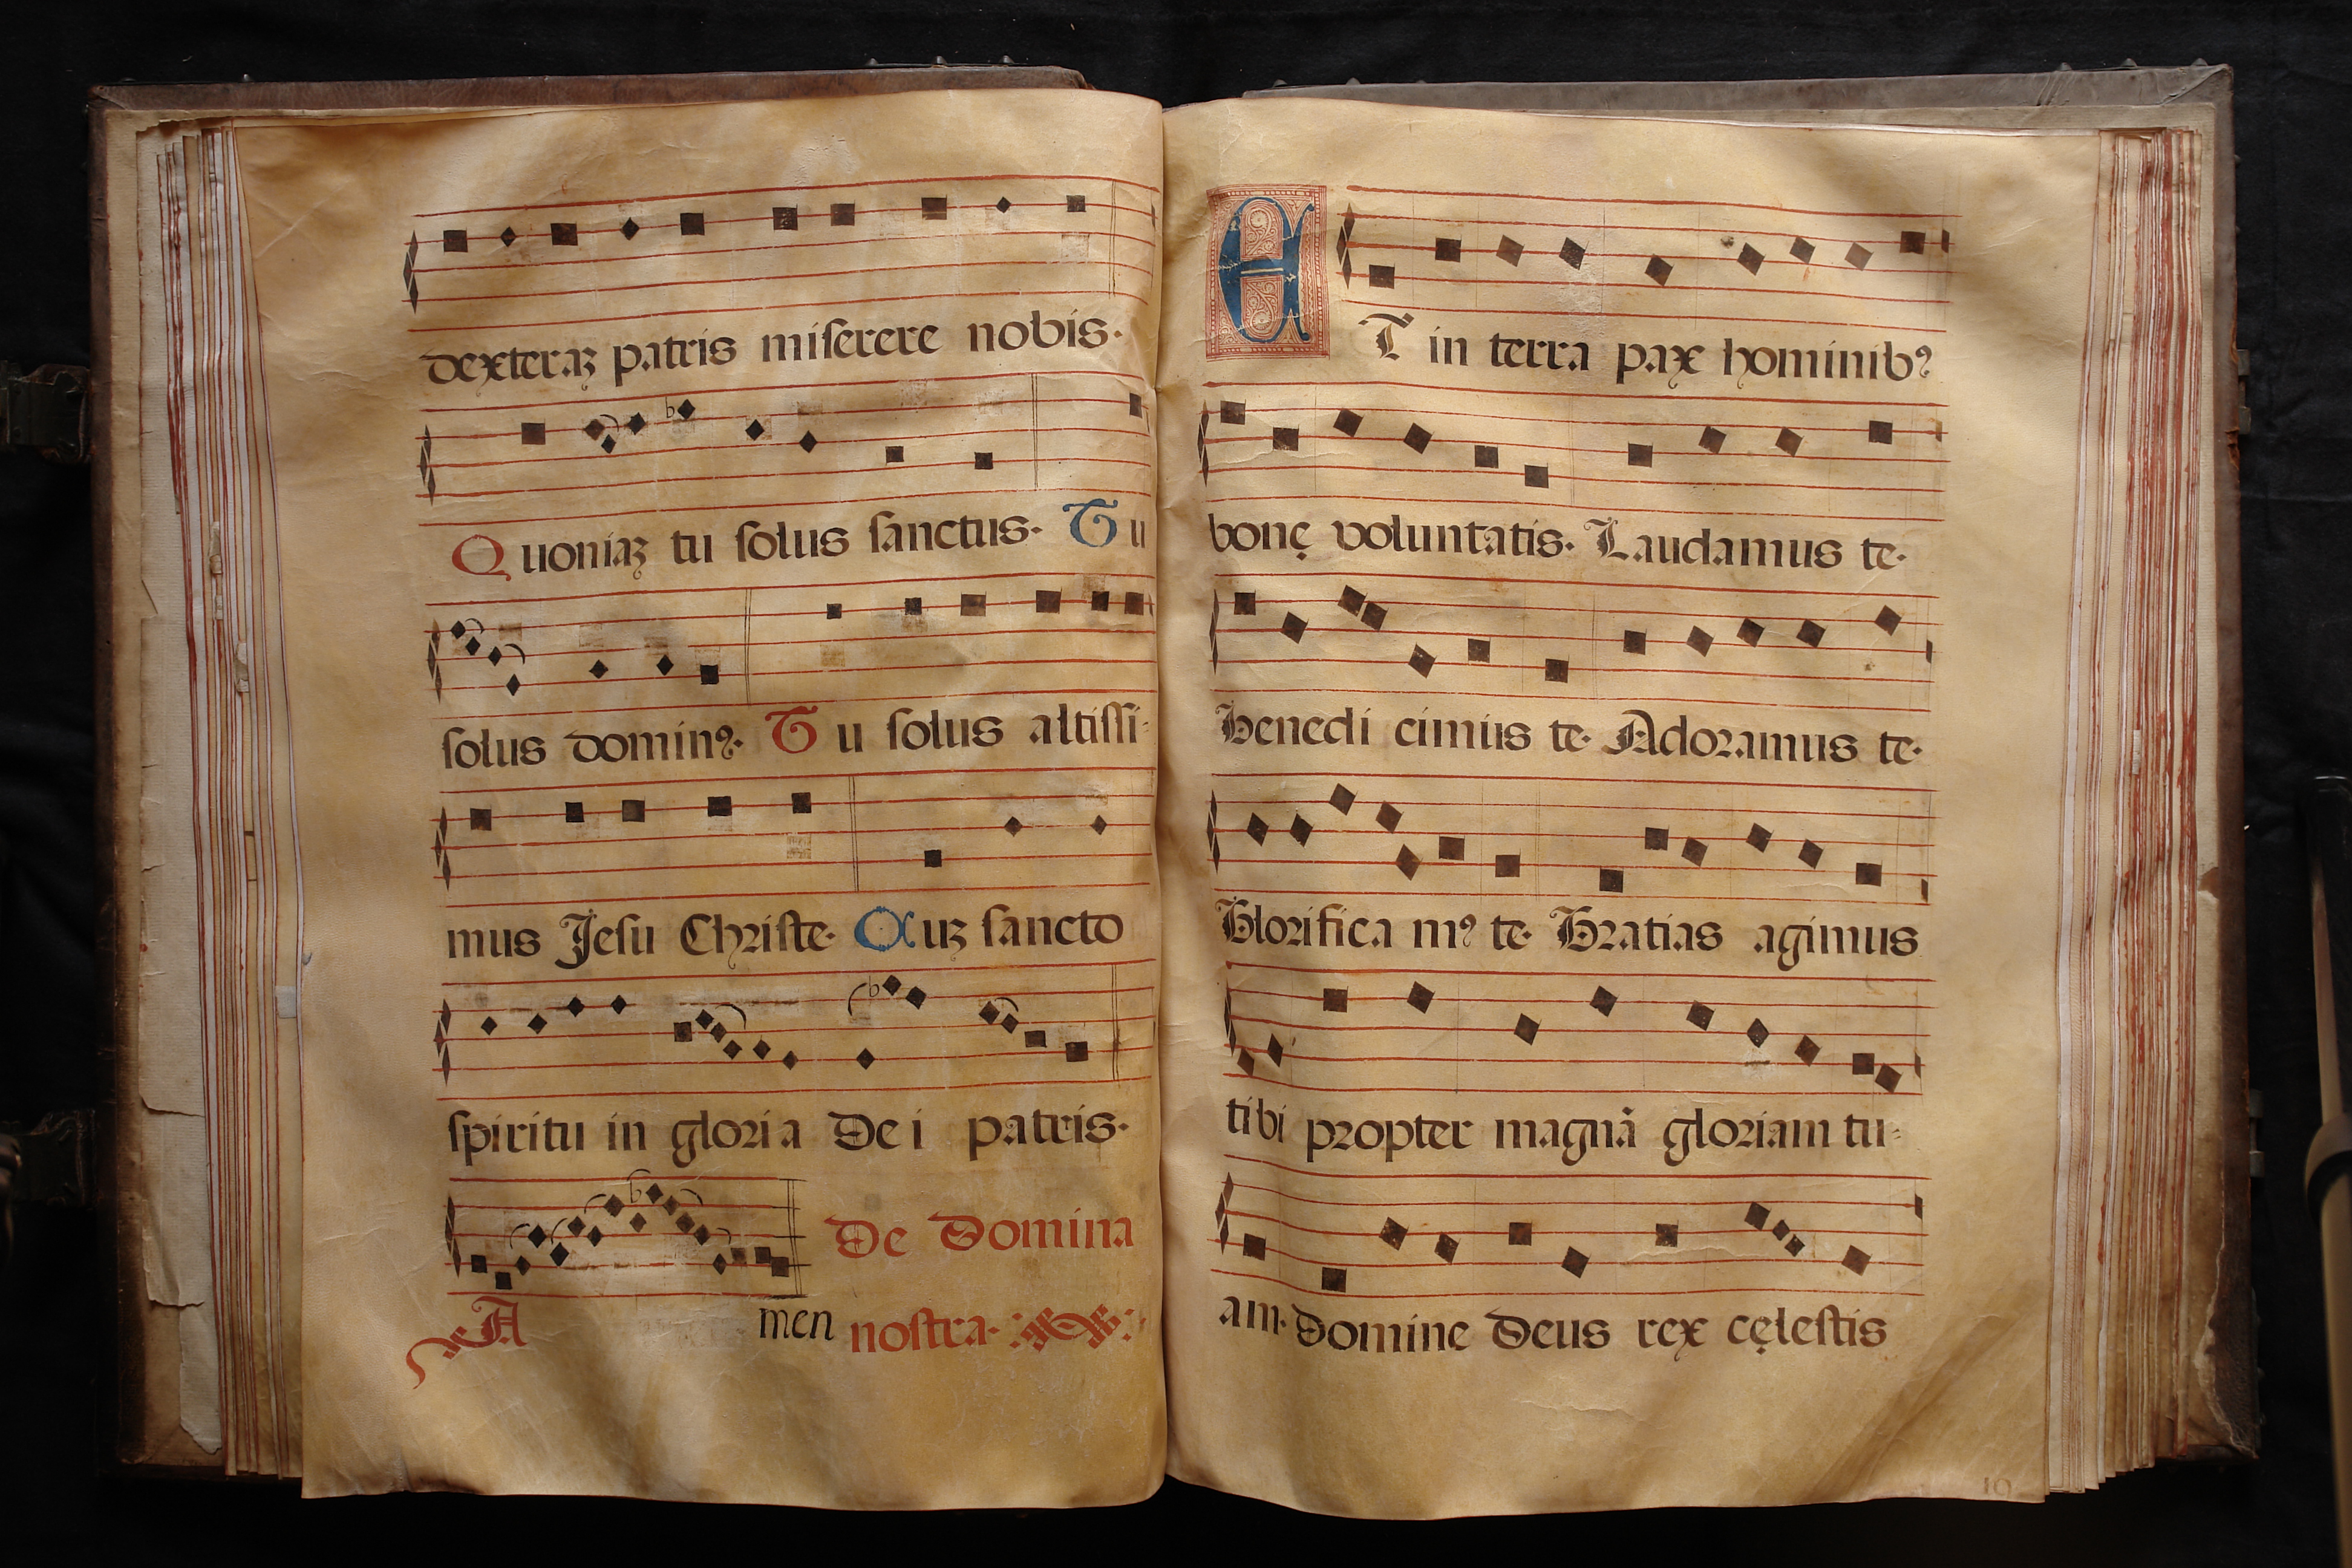 dexteraꝫ patris miſerere nobis.
Quoniaꝫ tu ſolus ſanctus. Tu
ſolus dominꝰ. Tu ſolus altiſſi-
mus Jeſu Chriſte. Cuꝫ ſancto
ſpiritu in gloria Dei patris.
Amen De Domina
noſtra.
ET in terra pax hominibꝰ
bonę voluntatis. Laudamus te.
Benedi cimus te. Adoramus te.
Glorifica mꝰ te. Gratias agimus
tibi propter magnã gloriam tu-
am. Domine Deus rex cęleſtis
19